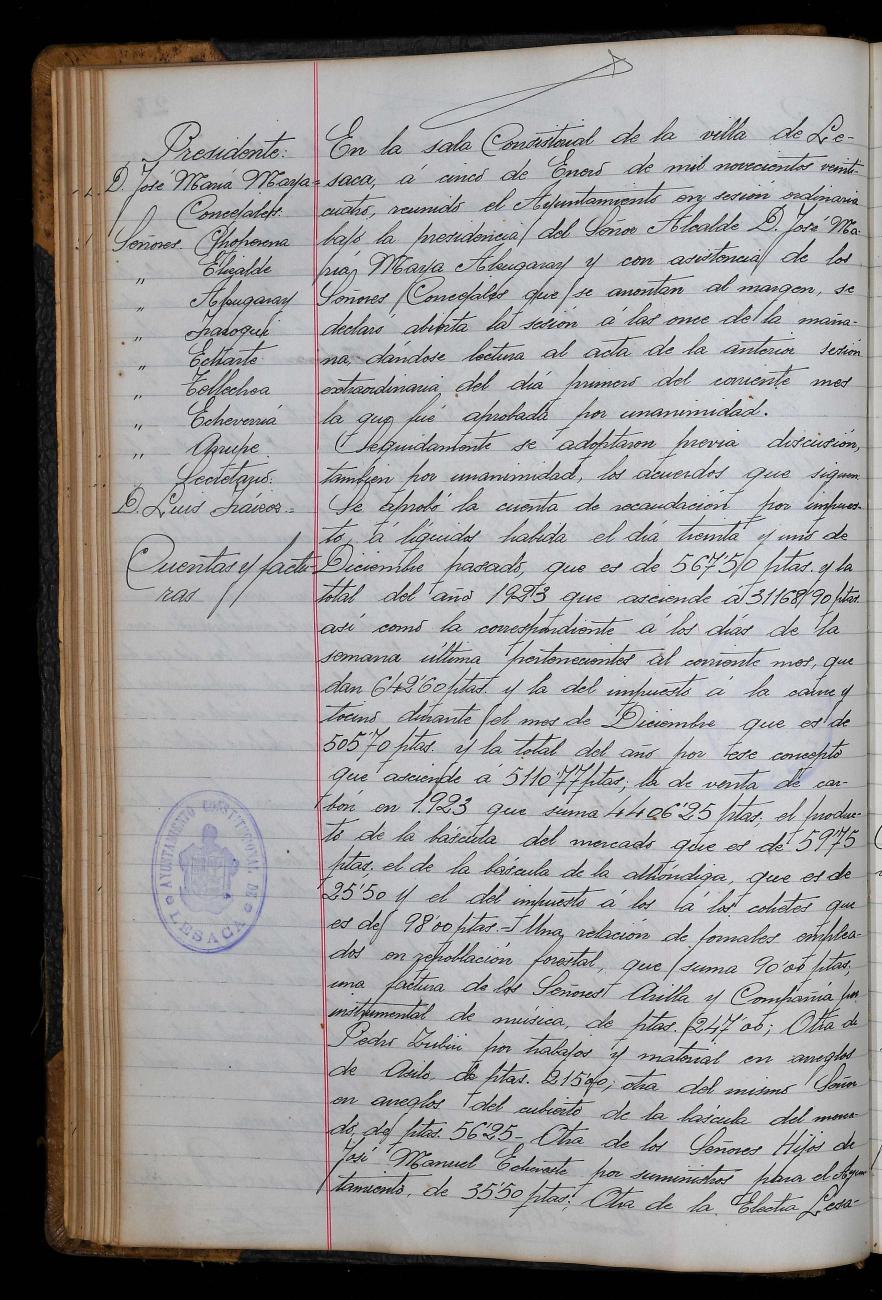 Presidente:
D. José María Maya=
Concejales.
Señores. Choperena
„ Elizalde
„ Alzugaray
„ Irazoqui
„ Echarte
„ Tellechea
„ Echeverría
„ Agrupe
Secretario.
D. Luis Iráizoz.=
Cuentas y factu-
ras
En la sala Consistorial de la villa de Le-
saca, á cinco de Enero de mil novecientos veinti-
cuatro, reunido el Ayuntamiento en sesión ordinaria
bajo la presidencia del Señor Alcalde D. José Ma-
ría Maya Alzugaray y con asistencia de los
Señores Concejales que se anontan al margen, se
declaró abierta la sesión á las once de la maña-
na, dándose lectura al acta de la anterior sesión
extraordinaria del día primero del corriente mes
la que fué aprobada por unanimidad.
Seguidamente se adoptaron previa discusión,
tambien por unanimidad, los acuerdos que siguen.
Se aprobó la cuenta de recaudación por impues-
to á líquidos habida el día treinta y uno de
Diciembre pasado, que es de 567'50 ptas. y la
total del año 1923 que asciende á 31168'90 ptas.
asi como la correspondiente á los días de la
semana última pertenecientes al corriente mes, que
dan 642'60 ptas. y la del impuesto á la carne y
tocino durante el mes de Diciembre que es de
505'70 ptas. y la total del año por ese concepto
que asciende á 5110'77 ptas; la de venta de car-
bon en 1.923 que suma 4406'25 ptas, el produc-
to de la báscula del mercado que es de 59'75
ptas. el de la báscula de la alhóndiga, que es de
25'50 y el del impuesto á los á los cohetes que
es de 98'00 ptas.- Una relación de jornales emplea-
dos en repoblación forestal, que suma 90'00 ptas.
una factura de los Señores Arilla y Compañia por
instrumental de musica, de ptas. 247'00; Otra de
Pedro Zubiri por trabajos y material en arreglos
de Asilo de ptas. 215'00; otra del mismo Señor
en arreglos del cubierto de la báscula del merca-
do, de ptas. 56'25- Otra de los Señores Hijos de
José Manuel Echeveste por suministros para el Ayun-
tamiento, de 35'50 ptas; Otra de la Electra Lesa-
AYUNTAMIENTO CONSTITUCIONAL DE
LESACA